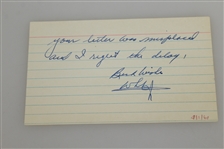 your letter was misplaced
and I regret the delay,
Best wishes